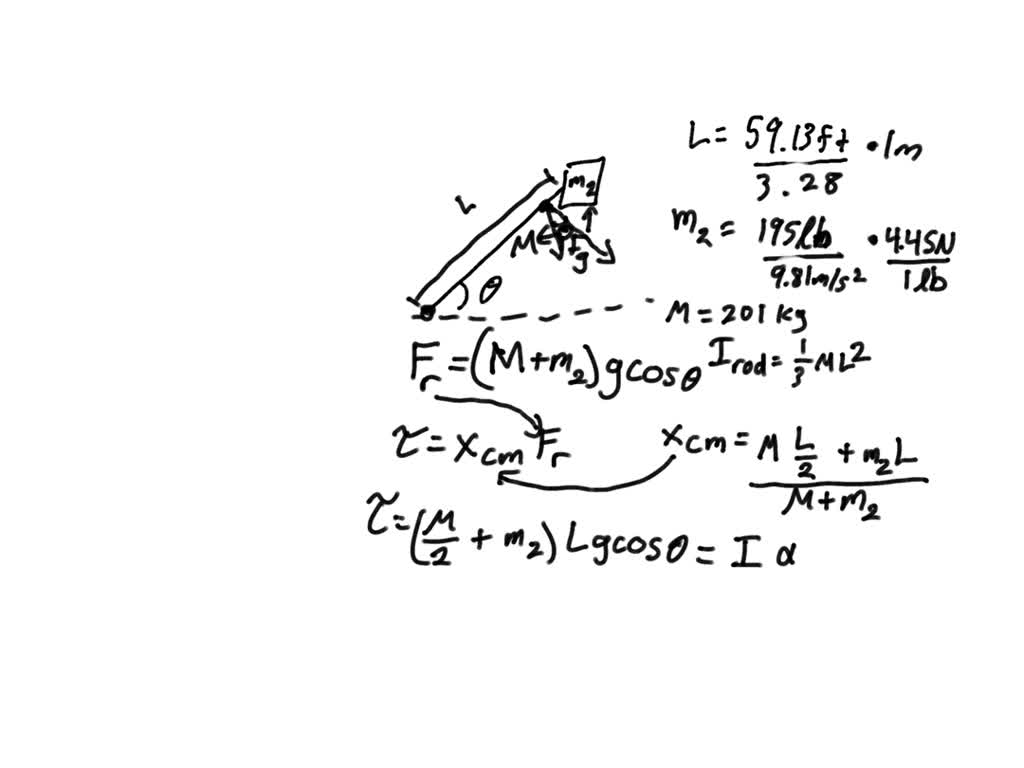 L = 59.13ft / 3.28 • 1m
L
m₂
m₂ = 195lb / 9.81m/s² • 4.45N / 1lb
M
Fg
θ
M = 201 kg
Fr = (M+m₂)gcosθ
I rod = 1/3 ML²
τ = xcm Fr
xcm = M L/2 + m₂L / M+m₂
τ = (M/2 + m₂) Lgcosθ = I α